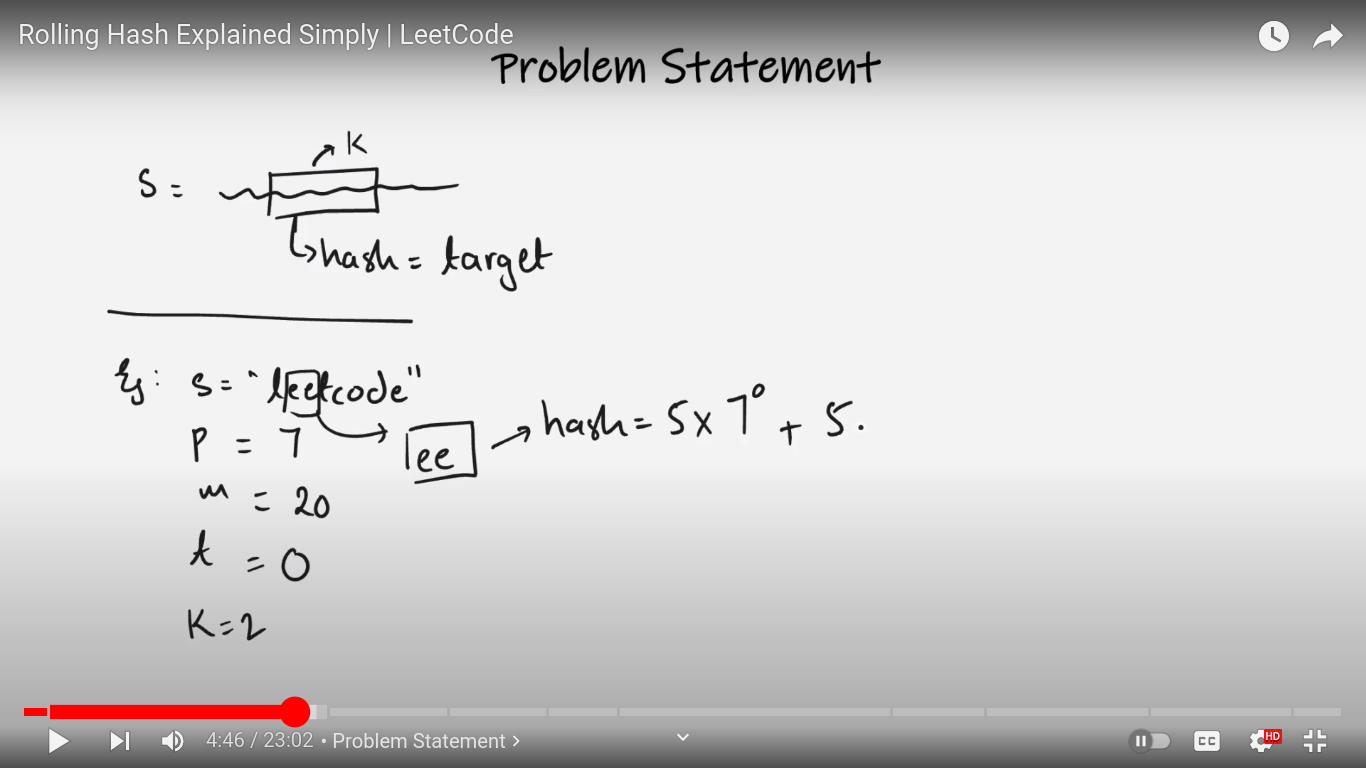 Rolling Hash Explained Simply | LeetCode
Problem Statement
K
S =
hash = target
Eg: s = "leetcode"
p = 7
ee
hash = 5 x 7⁰ + 5.
m = 20
t = 0
K = 2
4:46 / 23:02 • Problem Statement >
CC
HD